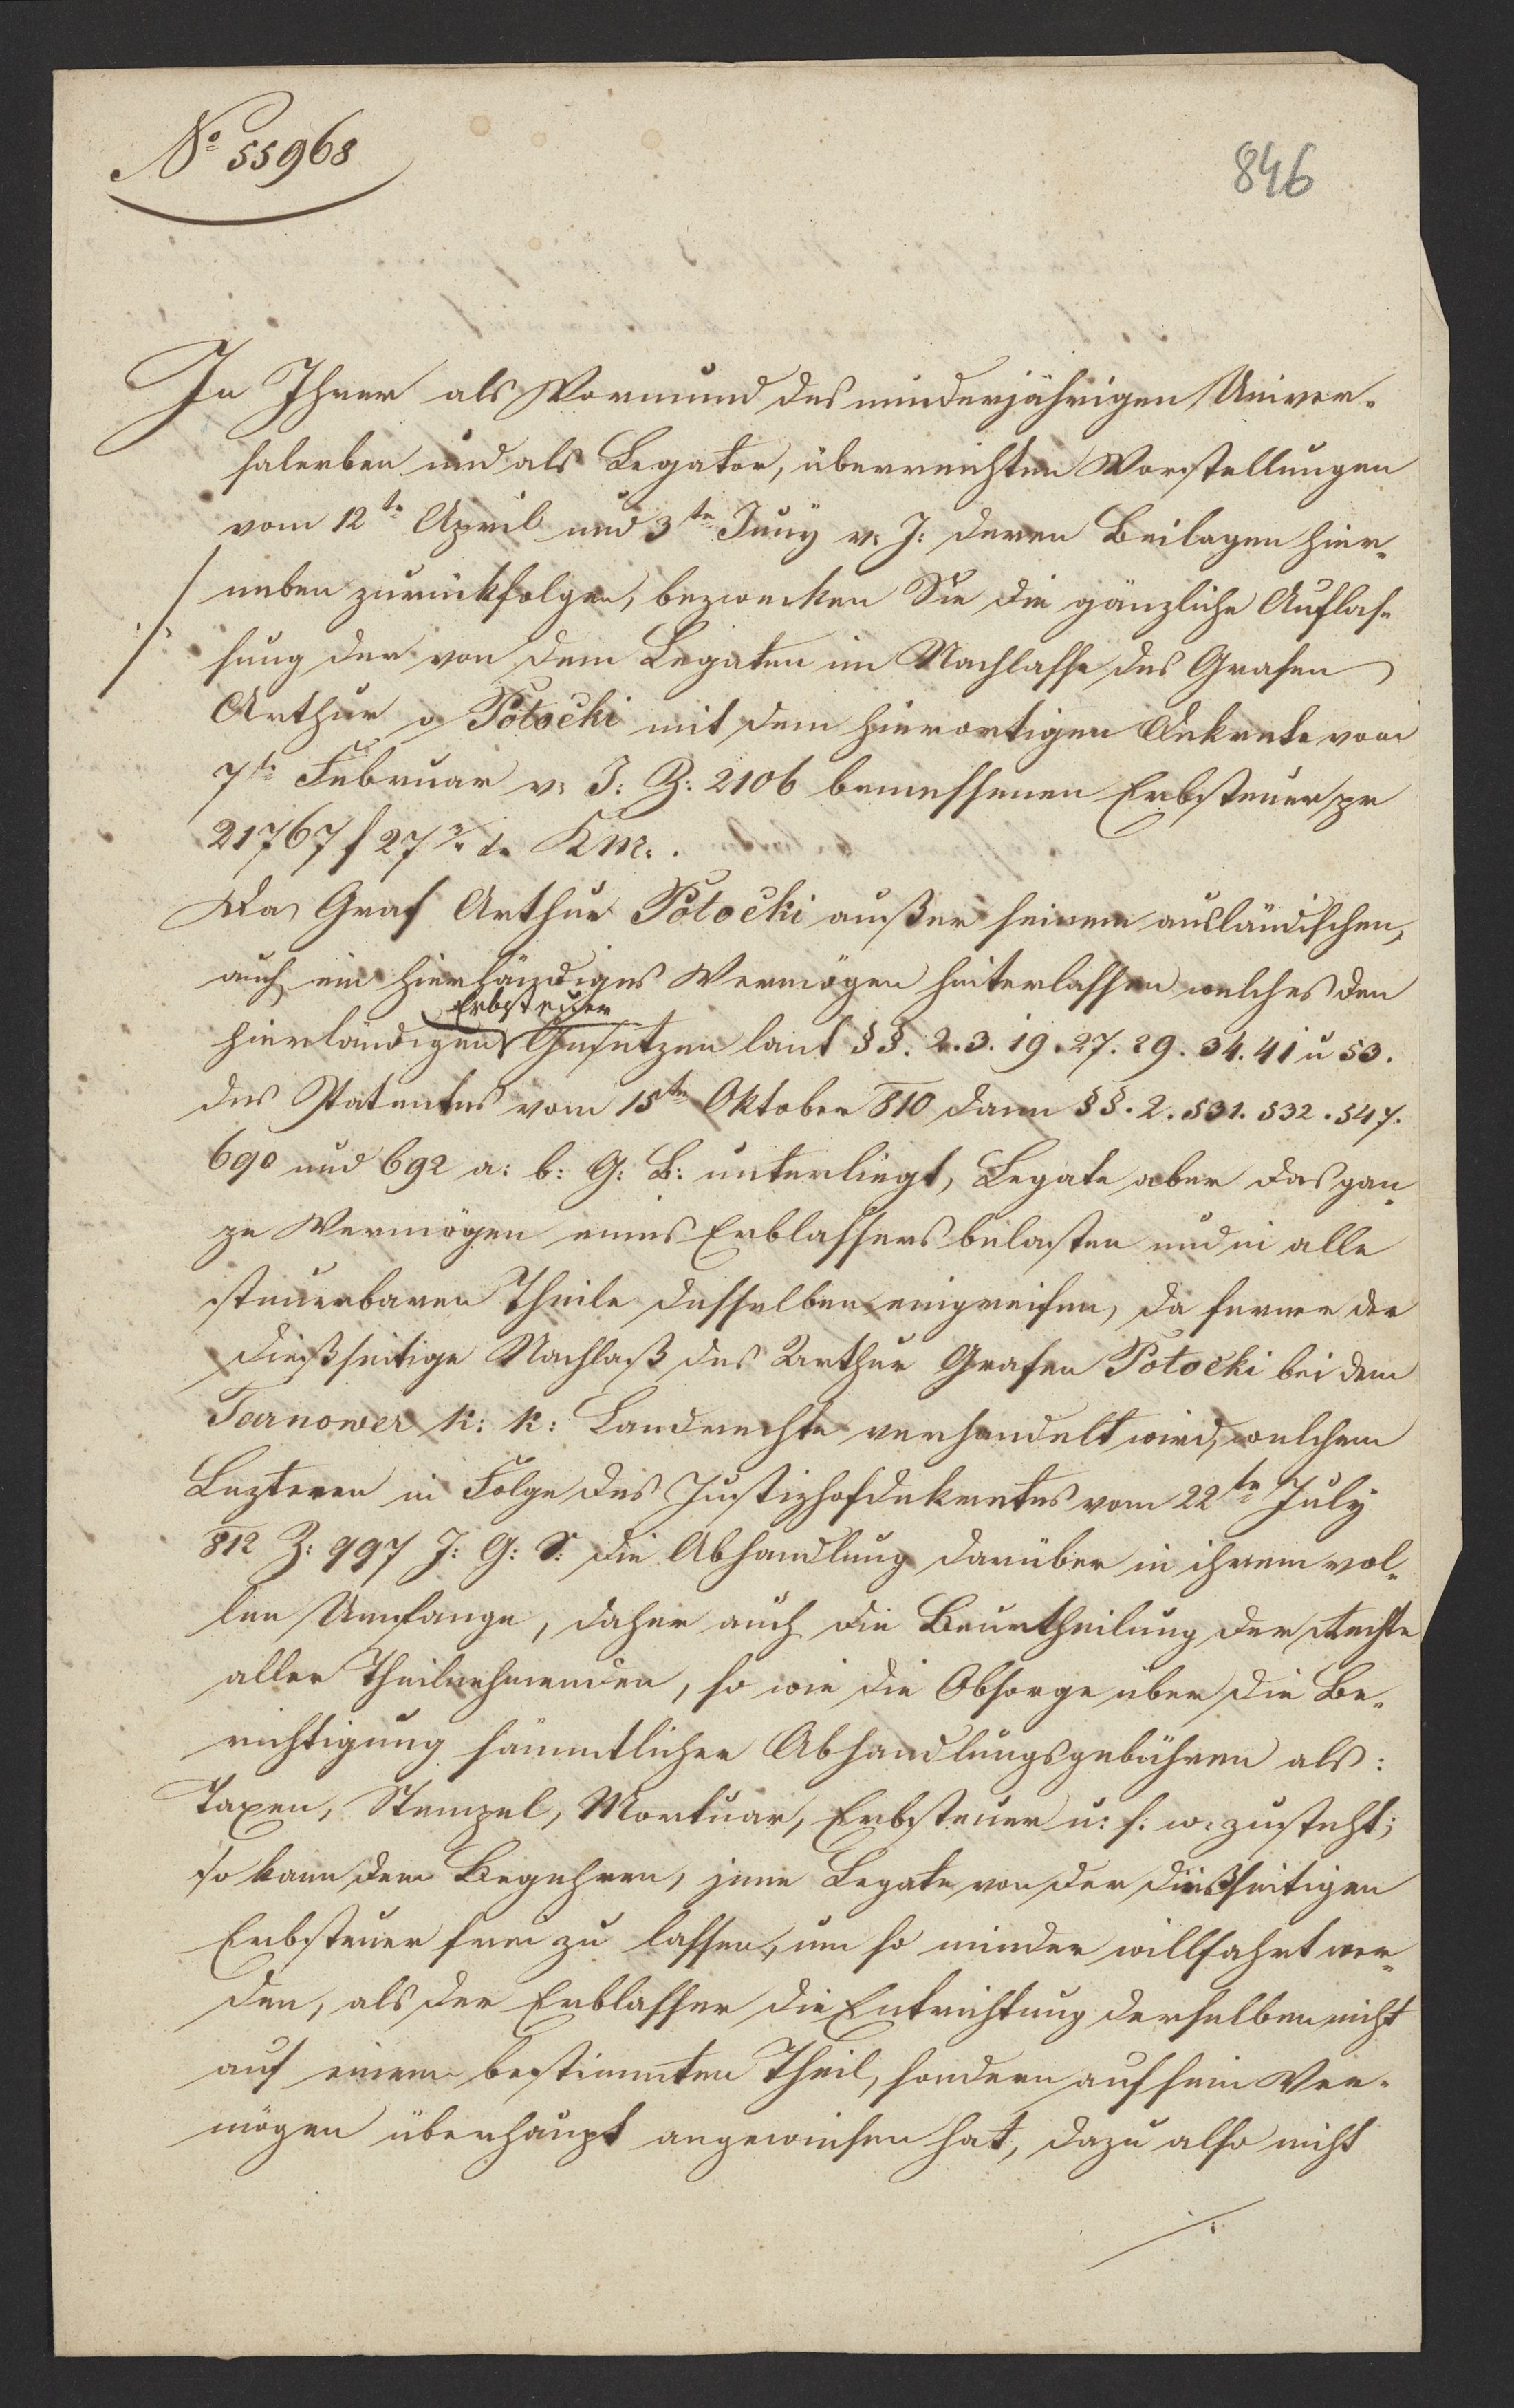 No 55968
846
In Ihrer als Vormund des minderjährigen Univer-
salerben und als Legator, überreichten Vorstellungen
vom 12te April und 3te Juny v: J: deren Beilagen hier-
neben zurückfolgen, bezwecken Sie die gänzliche Auflas-
sung der von dem Legaten im Nachlasse des Grafen
Arthur v Potocki mit dem hierortigen Dekrete vom
7te Februar v: J: Z: 2106 bemessenen Erbsteuer pr
21767 f 27 2/4 x Km.
Da Graf Arthur Potocki außer seinem ausländischen,
auch ein hierländiges Vermögen hinterlassen welches den
Erbsteuer
hierländigen Gesetzen laut §§. 2. 3. 19. 27. 29. 34. 41 u 53.
des Patentes vom 15te Oktober 810 dann §§. 2. 531. 532. 547.
690 und 692 a: b: G: B: unterliegt, Legate aber das gan-
ze Vermögen eines Erblassers belasten und in alle
steuerbaren Theile desselben eingreifen, da ferner der
dießseitige Nachlaß des Arthur Grafen Potocki bei dem
Tarnower k: k: Landrechte verhandelt wird, welchem
Lezteren in Folge des Justizhofdekretes vom 22te July
812 Z: 997 J: G: S: die Abhandlung darüber in ihrem vol-
len Umfange, daher auch die Beurtheilung der Rechte
aller Theilnehmenden, so wie die Obsorge über die Be-
richtigung sämmtlicher Abhandlungsgebühren als:
Taxen, Stempel, Mortuar, Erbsteuer u: s: w: zusteht;
so kann dem Begehren, jene Legate von der dießseitigen
Erbsteuer frei zu lassen, um so minder willfahrt wer-
den, als der Erblasser die Entrichtung derselben nicht
auf einem bestimmten Theil, sondern auf sein Ver-
mögen überhaupt angewiesen hat, dazu also nicht